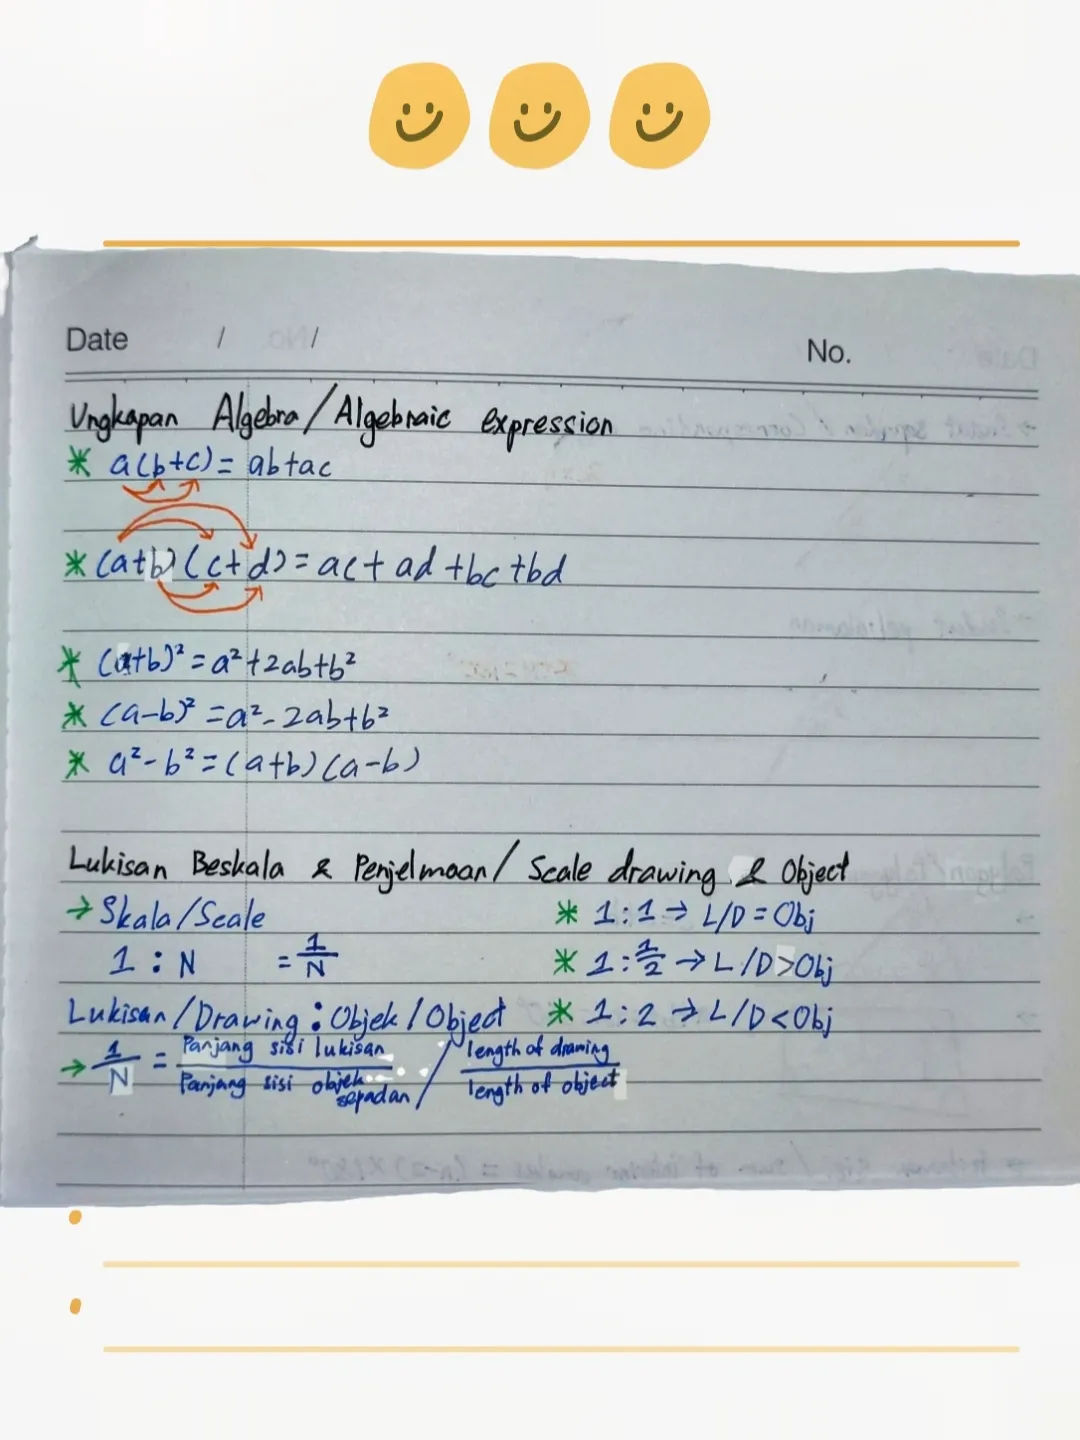 Date / / No.
Ungkapan Algebra/Algebraic expression
* a(b+c) = ab+ac
* (a+b)(c+d) = ac + ad + bc + bd
* (a+b)² = a²+2ab+b²
* (a-b)² = a²-2ab+b²
* a²-b² = (a+b)(a-b)
Lukisan Beskala & Penjelmaan/ Scale drawing & Object
→ Skala/Scale
1 : N = 1/N
Lukisan/Drawing : Objek/Object
→ 1/N = Panjang sisi lukisan / Panjang sisi objek sepadan / length of drawing / length of object
* 1:1 → L/D = Obj
* 1:1/2 → L/D > Obj
* 1:2 → L/D < Obj